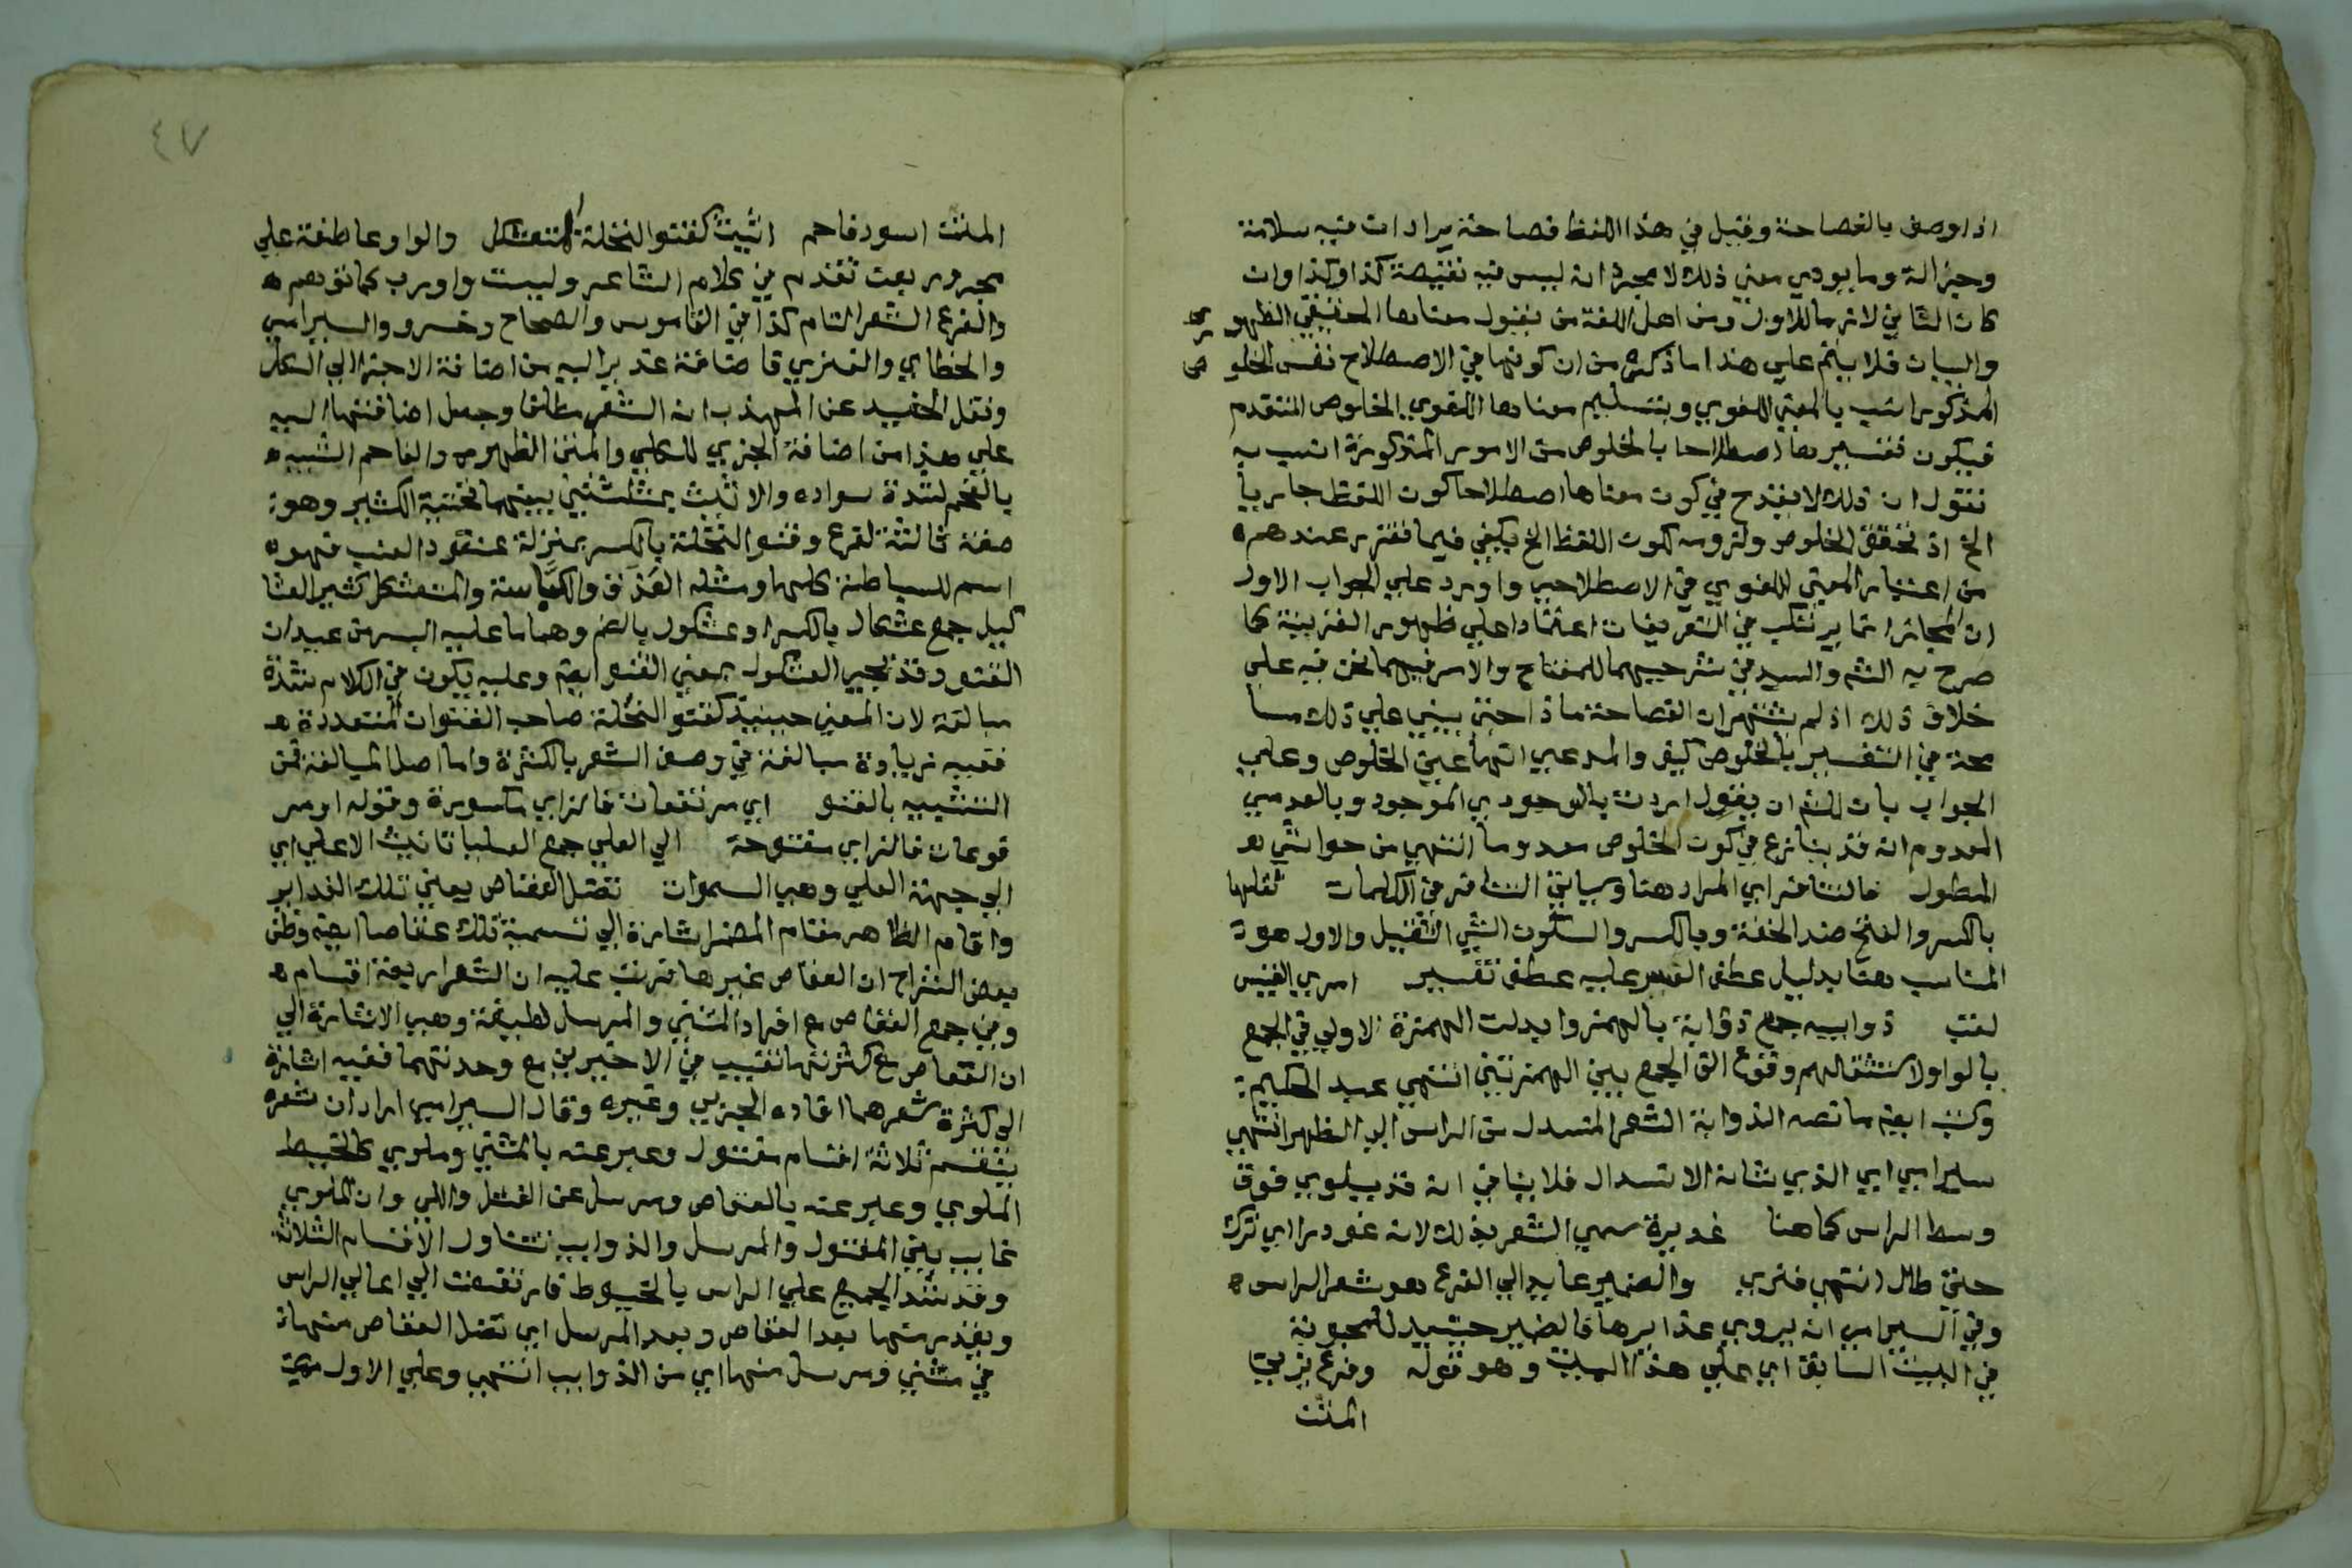 اذا وصف بالفصاحة وقيل في هذا اللفظ فصاحة يراد ان فيه سلامة
وجزالة وما يودي معني ذلك لا مجرد ان ليس فيه نقيصة كذا وكذا وان
كان الثاني لازما للاول ومن اهل اللغة من يقول معناها الحقيقي الظهور
والبيان فلا يتم علي هذا ما ذكره من ان كونها في الاصطلاح نفس الخلوص
المذكور انسب بالمعني اللغوي وبتسليم معناها اللغوي الخلوص المتقدم
فيكون تفسيرها اصطلاحا بالخلوص من الامور المذكورة انسب به
نقول ان ذلك لا يقدح في كون معناها اصطلاحا كون اللفظ جاريا
الخ اذ تحقق الخلوص ولزومه لكون اللفظ الخ يكفي فيما تقرر عندهم
من اعتبار المعني اللغوي في الاصطلاحي واورد علي الجواب الاول
ان المجاز انما يرتكب في التعريفات اعتمادا علي ظهور القرينة كما
صرح به الشم والسيد في شرحيهما للمفتاح والامر فيما نحن فيه علي
خلاف ذلك اذ لم يشتهر ان الفصاحة ماذا حتي يبني علي ذلك مسا
محة في التفسير بالخلوص كيف والمدعي انها عين الخلوص وعلي
الجواب بان للشم ان يقول اردت بالوجودي الموجود وبالعدمي
المعدوم انه قد ينازع في كون الخلوص معدوما انتهي من حواشي
المطول فالتنافر اي المراد هنا وسياتي التنافر في الكلمات ثقلها
بالكسر والفتح ضد الخفة وبالكسر والسكون الشي الثقيل والاول هو
المناسب هنا بدليل عطف العسر عليه عطف تفسير امري القيس
لقب ذوايبه جمع ذوابة بالهمز وابدلت الهمزة الاولي في الجمع
بالواو لاستثقالهم وقوع الف الجمع بين الهمزتين انتهي عبد الحكيم
وكتب ايضم ما نصه الذوابة الشعر المنسدل من الراس الي الظهر انتهي
سيرامي اي الذي شانه الانسدال فلا ينافي انه قد يلوي فوق
وسط الراس كما هنا غديرة سمي الشعر بذلك لانه غودر اي ترك
حتي طال انتهي فنري والضمير عايد الي الفرع هو شعر الراس
وفي السيرامي انه يروي غدايرها فالضمير حينيذ للمحبوبة
في البيت السابق اي علي هذا البيت وهو قوله وفرع يزين
المتن
٤٧
المتن اسود فاحم اثيث كقنو النخلة المتعثكل والواو عاطفة علي
مجرور بعن تقدم في كلام الشاعر وليست واو رب كما توهم
والفرع الشعر التام كذا في القاموس والصحاح وخسرو والسيرامي
والخطاي والفنري فاضافة غداير اليه من اضافة الاجزا الي الكل
ونقل الحفيد عن المهذب انه الشعر مطلقا وجعل اضافتها اليه
علي هذا من اضافة الجزي للكلي والمتن الظهر والفاحم الشبيه
بالفحم لشدة سواده والاثيث بمثلثتين بينهما تحتية الكثير وهو
صفة ثالثة لفرع وقنو النخلة بالكسر بمنزلة عنقود العنب فهو
اسم للسباطة كلها ومثله العذق والكباسة والمتعثكل كثير العثا
كيل جمع عثكال بالكسر او عثكول بالضم وهما ما عليه البسر من عيدان
القنو وقد يجي العثكول بمعني القنو ايضم وعليه يكون في الكلام شدة
مبالغة لان المعني حينيذ كقنو النخلة صاحب القنوات المتعددة
ففيه زيادة مبالغة في وصف الشعر بالكثرة واما اصل المبالغة فمن
التشبيه بالقنو اي مرتفعات فالزاي مكسورة وقوله او مر
فوعات فالزاي مفتوحة الي العلي جمع العليا تانيث الاعلي اي
الي جهة العلي وهي السموات تضل العقاص يعني تلك الغداير
واقام الظاهر مقام المضمر اشارة الي تسمية تلك عقاصا ايضم وظن
بعض الشراح ان العقاص غيرها فرتب عليه ان الشعر اربعة اقسام
وفي جمع العقاص مع افراد المثني والمرسل لطيفة وهي الاشارة الي
ان العقاص مع كثرتها تغيب في الاخيرين مع وحدتهما ففيه اشارة
الي كثرة شعرهما افاده الجزي وغيره وقال السيرامي اراد ان شعره
ينقسم ثلاثة اقسام مفتول وعبر عنه بالمثني وملوي كالخيط
الملوي وعبر عنه بالعقاص ومرسل عن الفتل واللي وان الملوي
غايب بين المفتول والمرسل والذوايب تتناول الاقسام الثلاثة
وقد شد الجميع علي الراس بالخيوط فارتفعت الي اعالي الراس
ويقدر منها بعد العقاص وبعد المرسل اي تضل العقاص منها
في مثني ومرسل منها اي من الذوايب انتهي وعلي الاول